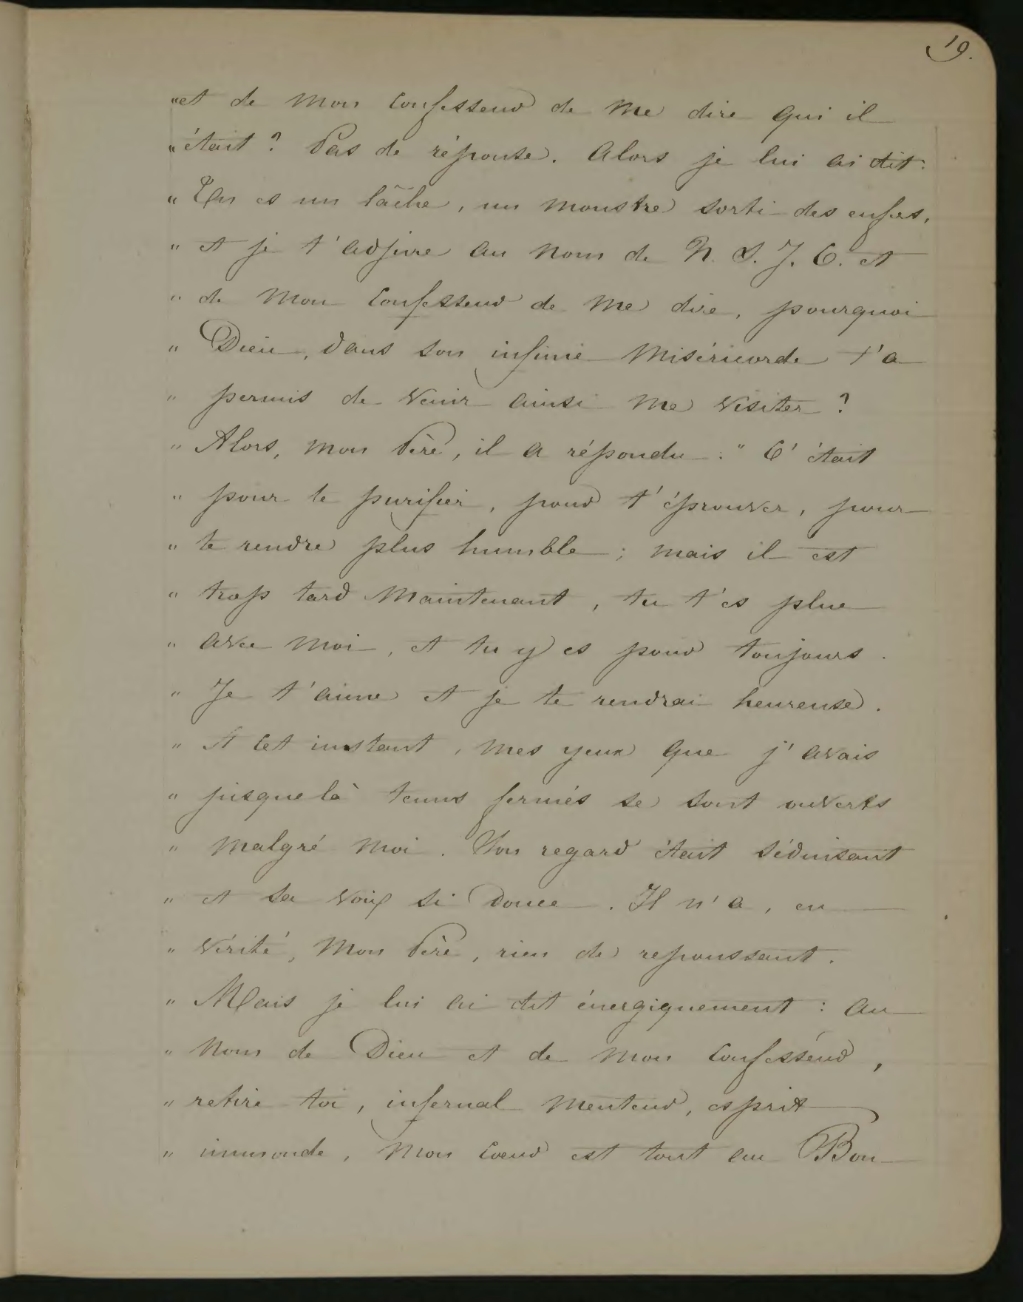 19.
"et de mon Confesseur de me dire qui il
"était ? Pas de réponse. Alors je lui ai dit :
" Tu es un lâche, un monstre sorti des enfers,
" et je t'adjure au nom de N. S. J. C. et
" de mon Confesseur de me dire, pourquoi
" Dieu, dans son infinie miséricorde t'a
" permis de venir ainsi me visiter ?
" Alors, mon Père, il a répondu : " C'était
" pour te purifier, pour t'éprouver, pour
" te rendre plus humble ; mais il est
" trop tard maintenant, tu t'es plue
" avec moi, et tu y es pour toujours.
" Je t'aime et je te rendrai heureuse.
" A cet instant, mes yeux que j'avais
" jusque là tenus fermés se sont ouverts
" malgré moi. Son regard était séduisant
" et sa voix si douce. Il n'a, en
" vérité, mon Père, rien de repoussant.
" Mais je lui ai dit énergiquement : au
" nom de Dieu et de mon Confesseur,
" retire toi, infernal menteur, esprit
" immonde, mon cœur est tout au Bon